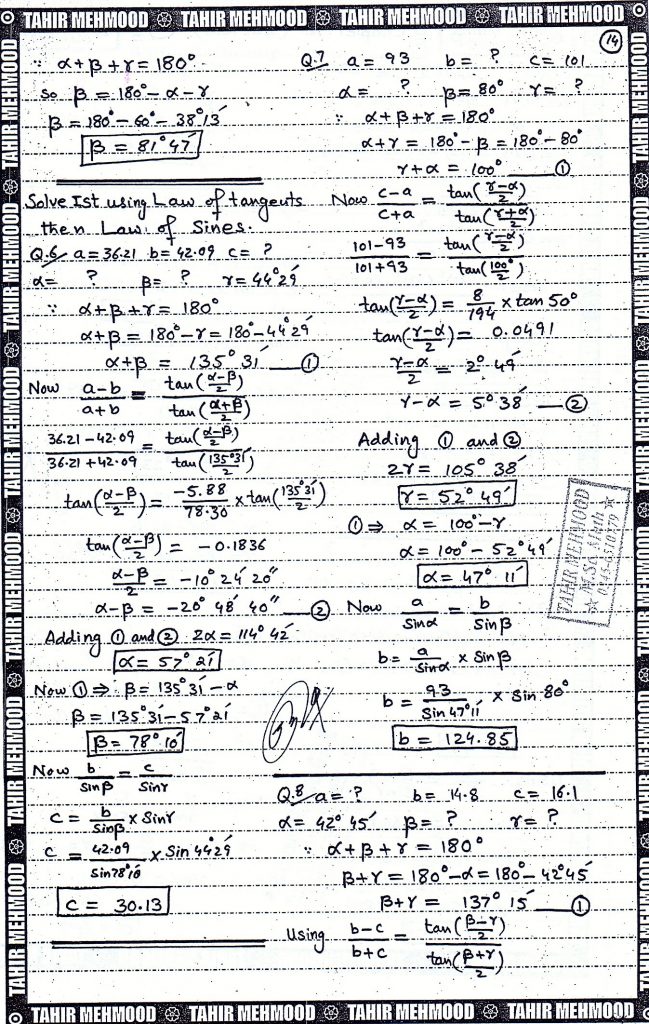 TAHIR MEHMOOD TAHIR MEHMOOD TAHIR MEHMOOD TAHIR MEHMOOD
14
∵ α+β+γ = 180°
So β = 180° - α - γ
β = 180° - 60° - 38°13′
β = 81°47′
Solve Ist using Law of tangents
then Law of Sines.
Q.6 a = 36.21 b = 42.09 c = ?
α = ? β = ? γ = 44°29′
∵ α+β+γ = 180°
α+β = 180° - γ = 180° - 44°29′
α+β = 135°31′ ①
Now a-b/a+b = tan(α-β/2)/tan(α+β/2)
36.21-42.09/36.21+42.09 = tan(α-β/2)/tan(135°31′/2)
tan(α-β/2) = -5.88/78.30 × tan(135°31′/2)
tan(α-β/2) = -0.1836
α-β/2 = -10° 24′ 20″
α-β = -20° 48′ 40″ ②
Adding ① and ② 2α = 114° 42′
α = 57° 21′
Now ① ⇒ β = 135°31′ - α
β = 135°31′ - 57°21′
β = 78° 10′
Now b/Sinβ = c/Sinγ
c = b/Sinβ × Sinγ
c = 42.09/Sin78°10′ × Sin 44°29′
c = 30.13
Q.7 a = 93 b = ? c = 101
α = ? β = 80° γ = ?
∵ α+β+γ = 180°
α+γ = 180° - β = 180° - 80°
γ+α = 100° ①
Now c-a/c+a = tan(γ-α/2)/tan(γ+α/2)
101-93/101+93 = tan(γ-α/2)/tan(100°/2)
tan(γ-α/2) = 8/194 × tan 50°
tan(γ-α/2) = 0.0491
γ-α/2 = 2° 49′
γ-α = 5° 38′ ②
Adding ① and ②
2γ = 105° 38′
γ = 52° 49′
① ⇒ α = 100° - γ
α = 100° - 52° 49′
α = 47° 11′
Now a/Sinα = b/Sinβ
b = a/Sinα × Sinβ
b = 93/Sin 47°11′ × Sin 80°
b = 124.85
TAHIR MEHMOOD
M.Sc Math
Q.8 a = ? b = 14.8 c = 16.1
α = 42° 45′ β = ? γ = ?
∵ α+β+γ = 180°
β+γ = 180° - α = 180° - 42°45′
β+γ = 137° 15′ ①
Using b-c/b+c = tan(β-γ/2)/tan(β+γ/2)
TAHIR MEHMOOD TAHIR MEHMOOD TAHIR MEHMOOD TAHIR MEHMOOD
TAHIR MEHMOOD TAHIR MEHMOOD TAHIR MEHMOOD TAHIR MEHMOOD TAHIR MEHMOOD TAHIR MEHMOOD
TAHIR MEHMOOD TAHIR MEHMOOD TAHIR MEHMOOD TAHIR MEHMOOD TAHIR MEHMOOD TAHIR MEHMOOD